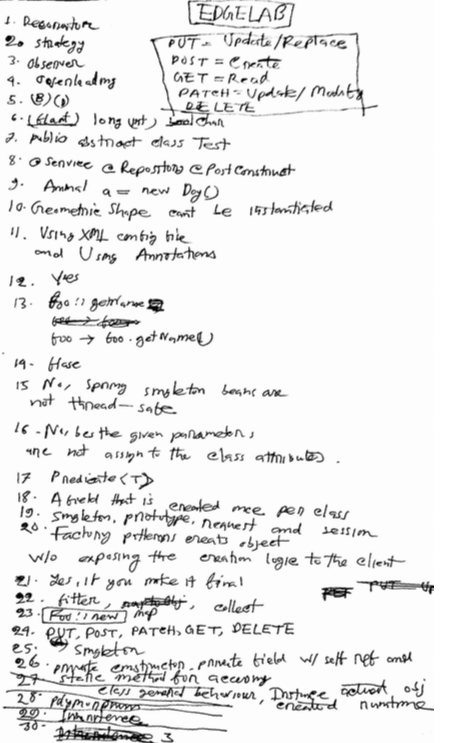 EDGELAB
PUT = Update/Replace
POST = Create
GET = Read
PATCH = Update/Modify
DELETE
1. Decorator
2. strategy
3. observer
4. overloading
5. (B)()
6. (float) long (int), bool char
7. public abstract class Test
8. @Service @Repository @PostConstruct
9. Animal a = new Dog()
10. Geometric Shape cant be instantiated
11. Using XML config file
and Using Annotations
12. Yes
13. foo :: getName
foo → foo.getName()
14. false
15 No, Spring singleton beans are
not thread-safe
16. No, the given parameters
are not assign to the class attributes.
17 Predicate<T>
18. A field that is created once per class
19. Singleton, prototype, request and session
20. Factory patterns creats object
w/o exposing the creation logic to the client
21. Yes, if you make it final
22. filter, map, collect
23. Foo::new
24. PUT, POST, PATCH, GET, DELETE
25. → Singleton
26. private constructor, private field w/ self ref and
27. static method for access
class general behaviour, Instance actual obj
created runtime
28. polymorphism
29. Inheritence
30. 3